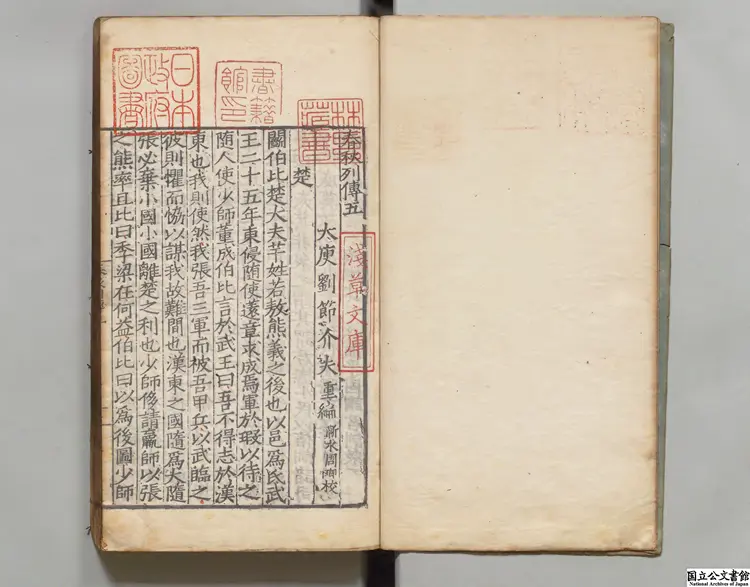 春秋列傳五
大庾劉節介夫重編蘄水周校
楚
鬭伯比楚大夫芊姓若敖熊義之後也以邑爲氏武
王二十五年東侵隨使薳章求成焉軍於瑕以待之
隨人使少師董成伯比言於武王曰吾不得志於漢
東也我則使然我張吾三軍而被吾甲兵以武臨之
彼則懼而恊以謀我故難間也漢東之國隨爲大隨
張必棄小國小國離楚之利也少師侈請羸師以張
之熊率且比曰季梁在何益伯比曰以爲後圖少師
日本政府圖書
書籍館印
林氏藏書
淺草文庫
国立公文書館
National Archives of Japan